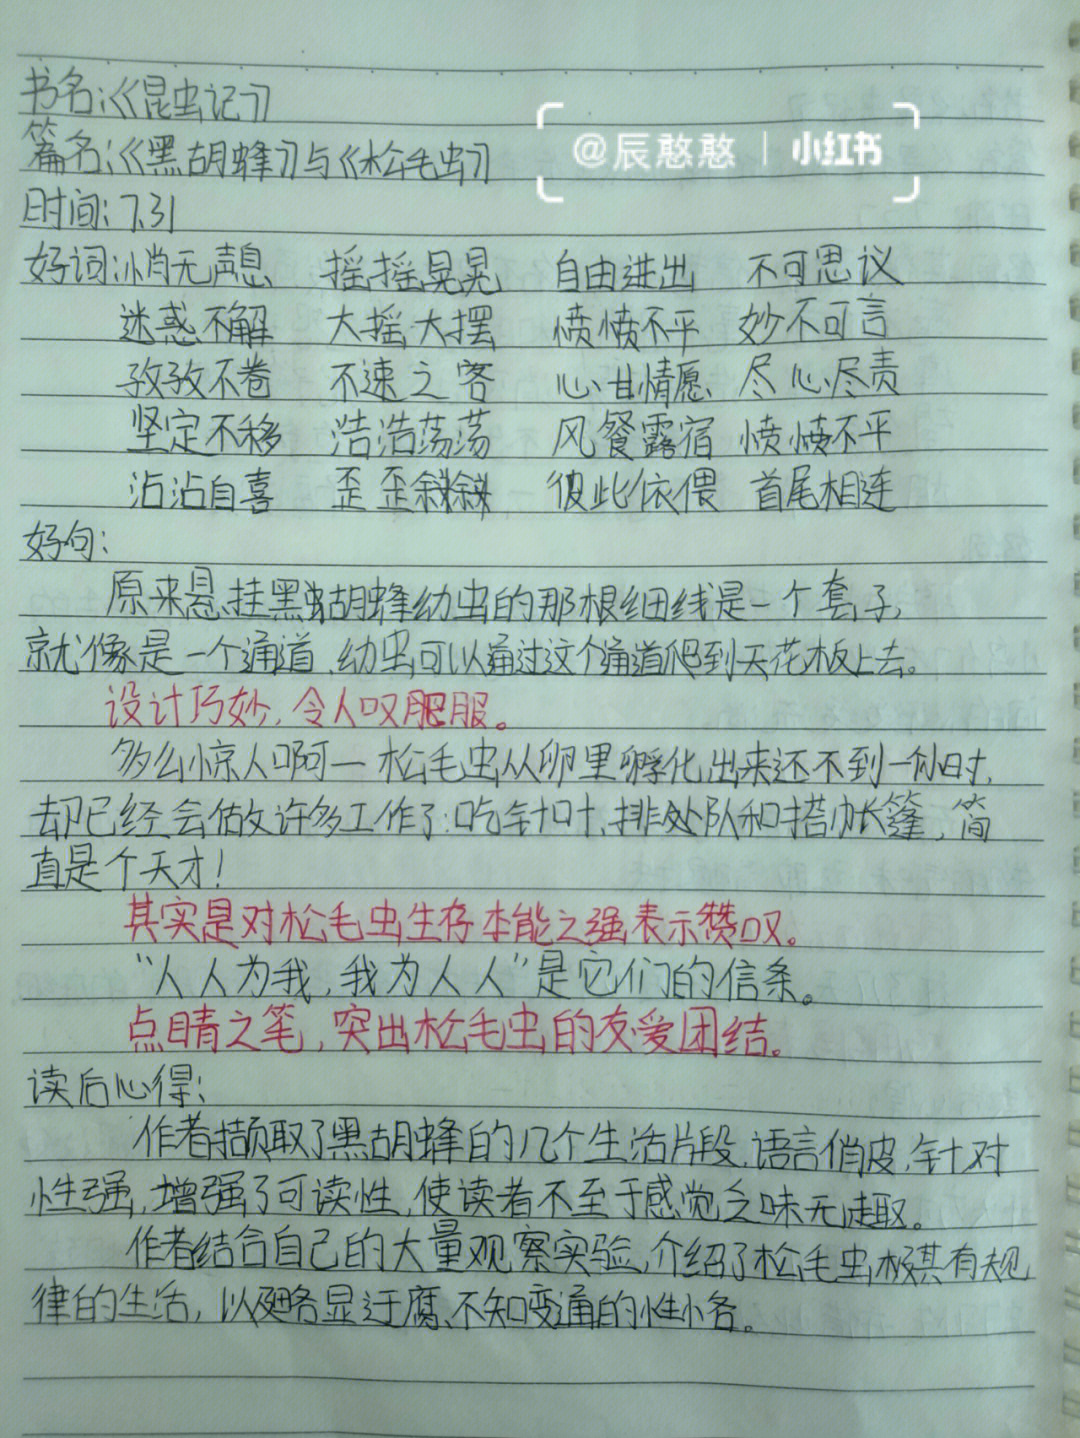 书名:《昆虫记》
@辰憨憨 | 小红书
篇名:《黑胡蜂》与《松毛虫》
时间:7.31
好词:悄无声息 摇摇晃晃 自由进出 不可思议
迷惑不解 大摇大摆 愤愤不平 妙不可言
孜孜不卷 不速之客 心甘情愿 尽心尽责
坚定不移 浩浩荡荡 风餐露宿 愤愤不平
沾沾自喜 歪歪斜斜 彼此依偎 首尾相连
好句:
原来悬挂黑胡蜂幼虫的那根细线是一个套子,
就像是一个通道,幼虫可以通过这个通道爬到天花板上去。
设计巧妙,令人叹服。
多么惊人啊一松毛虫从卵里孵化出来还不到一小时,
却已经会做许多工作了:吃针叶、排队和搭帐篷,简
直是个天才!
其实是对松毛虫生存本能之强表示赞叹。
“人人为我,我为人人”是它们的信条。
点睛之笔,突出松毛虫的友爱团结。
读后心得:
作者撷取了黑胡蜂的几个生活片段,语言俏皮,针对
性强,增强了可读性,使读者不至于感觉乏味无趣。
作者结合自己的大量观察实验,介绍了松毛虫极其有规
律的生活,以及略显迂腐、不知变通的性格。